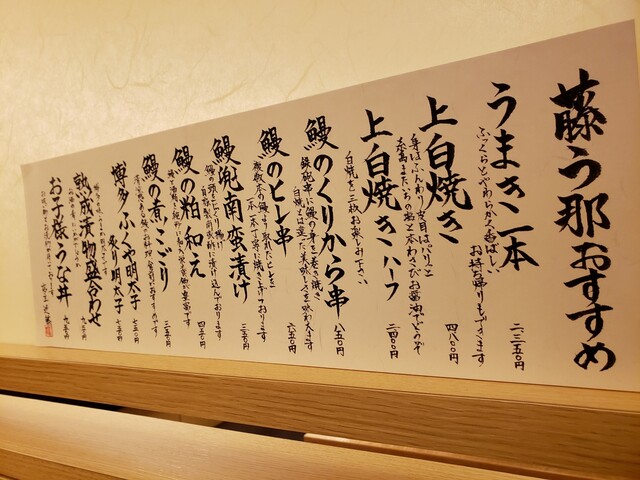 藤う那おすすめ
うまき一本
ふっくらとやわらかく香ばしい
お持ち帰りもできます
二、三五〇円
上白焼き
身はふんわり皮目はパリッと
糸島またいちの塩と本わさびお醤油でどうぞ
四、八〇〇円
上白焼きハーフ
白焼を二枚お楽しみ下さい
二、四〇〇円
鰻のくりから串
鉄砲串に鰻の身を巻き焼き
八五〇円
鰻のヒレ串
一本一本丁寧に焼き上げております
六五〇円
鰻兜南蛮漬け
三五〇円
鰻の粕和え
四五〇円
鰻の煮こごり
三五〇円
博多ふくや明太子
七五〇円
炙り明太子
七五〇円
熟成漬物盛合わせ
七五〇円
お子様うな丼